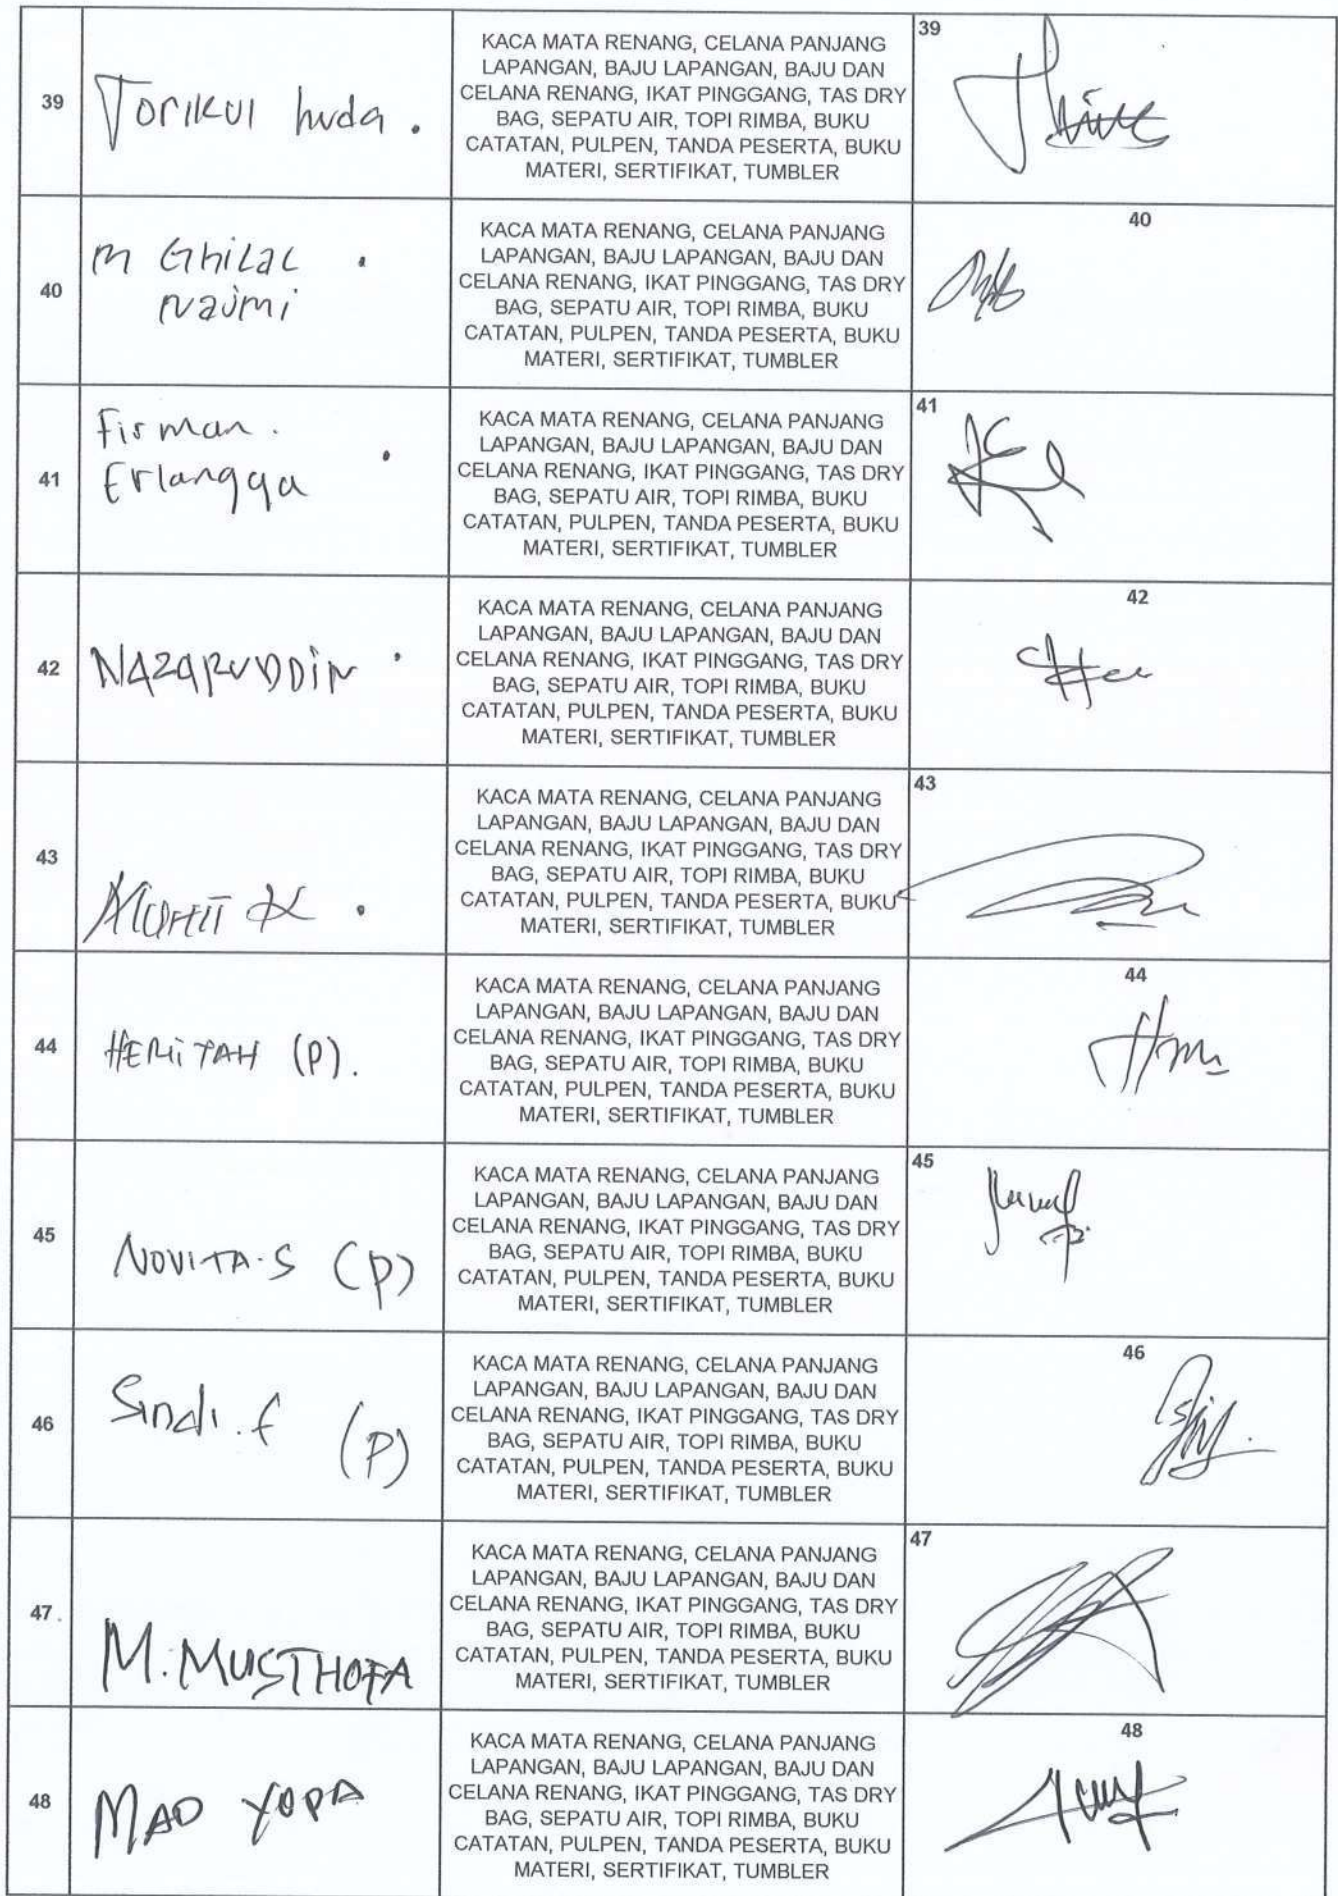 39
Torikul huda .
KACA MATA RENANG, CELANA PANJANG
LAPANGAN, BAJU LAPANGAN, BAJU DAN
CELANA RENANG, IKAT PINGGANG, TAS DRY
BAG, SEPATU AIR, TOPI RIMBA, BUKU
CATATAN, PULPEN, TANDA PESERTA, BUKU
MATERI, SERTIFIKAT, TUMBLER
39
40
M Ghilal .
Najmi
KACA MATA RENANG, CELANA PANJANG
LAPANGAN, BAJU LAPANGAN, BAJU DAN
CELANA RENANG, IKAT PINGGANG, TAS DRY
BAG, SEPATU AIR, TOPI RIMBA, BUKU
CATATAN, PULPEN, TANDA PESERTA, BUKU
MATERI, SERTIFIKAT, TUMBLER
40
41
Firman .
Erlangga .
KACA MATA RENANG, CELANA PANJANG
LAPANGAN, BAJU LAPANGAN, BAJU DAN
CELANA RENANG, IKAT PINGGANG, TAS DRY
BAG, SEPATU AIR, TOPI RIMBA, BUKU
CATATAN, PULPEN, TANDA PESERTA, BUKU
MATERI, SERTIFIKAT, TUMBLER
41
42
NAZARUDDIN .
KACA MATA RENANG, CELANA PANJANG
LAPANGAN, BAJU LAPANGAN, BAJU DAN
CELANA RENANG, IKAT PINGGANG, TAS DRY
BAG, SEPATU AIR, TOPI RIMBA, BUKU
CATATAN, PULPEN, TANDA PESERTA, BUKU
MATERI, SERTIFIKAT, TUMBLER
42
43
KACA MATA RENANG, CELANA PANJANG
LAPANGAN, BAJU LAPANGAN, BAJU DAN
CELANA RENANG, IKAT PINGGANG, TAS DRY
BAG, SEPATU AIR, TOPI RIMBA, BUKU
CATATAN, PULPEN, TANDA PESERTA, BUKU
MATERI, SERTIFIKAT, TUMBLER
43
44
(P).
KACA MATA RENANG, CELANA PANJANG
LAPANGAN, BAJU LAPANGAN, BAJU DAN
CELANA RENANG, IKAT PINGGANG, TAS DRY
BAG, SEPATU AIR, TOPI RIMBA, BUKU
CATATAN, PULPEN, TANDA PESERTA, BUKU
MATERI, SERTIFIKAT, TUMBLER
44
45
NOVITA.S (P)
KACA MATA RENANG, CELANA PANJANG
LAPANGAN, BAJU LAPANGAN, BAJU DAN
CELANA RENANG, IKAT PINGGANG, TAS DRY
BAG, SEPATU AIR, TOPI RIMBA, BUKU
CATATAN, PULPEN, TANDA PESERTA, BUKU
MATERI, SERTIFIKAT, TUMBLER
45
46
Sindi.f (P)
KACA MATA RENANG, CELANA PANJANG
LAPANGAN, BAJU LAPANGAN, BAJU DAN
CELANA RENANG, IKAT PINGGANG, TAS DRY
BAG, SEPATU AIR, TOPI RIMBA, BUKU
CATATAN, PULPEN, TANDA PESERTA, BUKU
MATERI, SERTIFIKAT, TUMBLER
46
47
M.MUSTHOFA
KACA MATA RENANG, CELANA PANJANG
LAPANGAN, BAJU LAPANGAN, BAJU DAN
CELANA RENANG, IKAT PINGGANG, TAS DRY
BAG, SEPATU AIR, TOPI RIMBA, BUKU
CATATAN, PULPEN, TANDA PESERTA, BUKU
MATERI, SERTIFIKAT, TUMBLER
47
48
MAD YOPA
KACA MATA RENANG, CELANA PANJANG
LAPANGAN, BAJU LAPANGAN, BAJU DAN
CELANA RENANG, IKAT PINGGANG, TAS DRY
BAG, SEPATU AIR, TOPI RIMBA, BUKU
CATATAN, PULPEN, TANDA PESERTA, BUKU
MATERI, SERTIFIKAT, TUMBLER
48